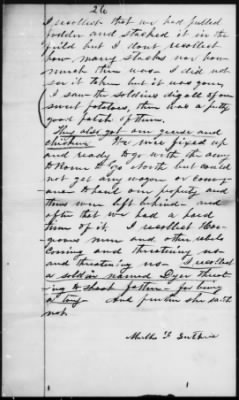 26
I recollect that we had pulled
fodder and stacked it in the
field but I dont recollect
how many stacks nor how
much there was – I did not
see it taken but it was gone,
I saw the soldiers dig all of our
sweet potatoes, there was a pretty
good patch of them.
They also got our geese and
chickens We were fixed up
and ready to go with the army
to Rome to go North but could
not get any wagon or convey-
ance to haul our property and
thus were left behind – and
after that we had a hard
time of it. I recollect
men and other rebels
coming and threatening us –
and threatening us – I recollect
a soldier named Dyer threat-
ing to shoot father – for being
a tory – And further she saith
not.
Martha F Guthrie